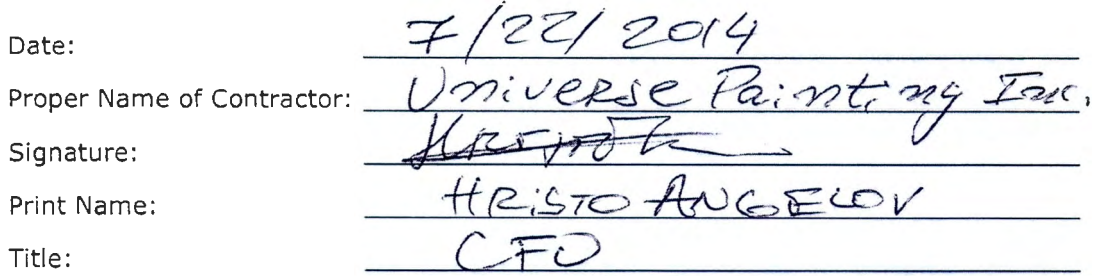 Date: 7/22/2014
Proper Name of Contractor: Universe Painting Inc.
Signature:
Print Name: HRISTO ANGELOV
Title: CFO